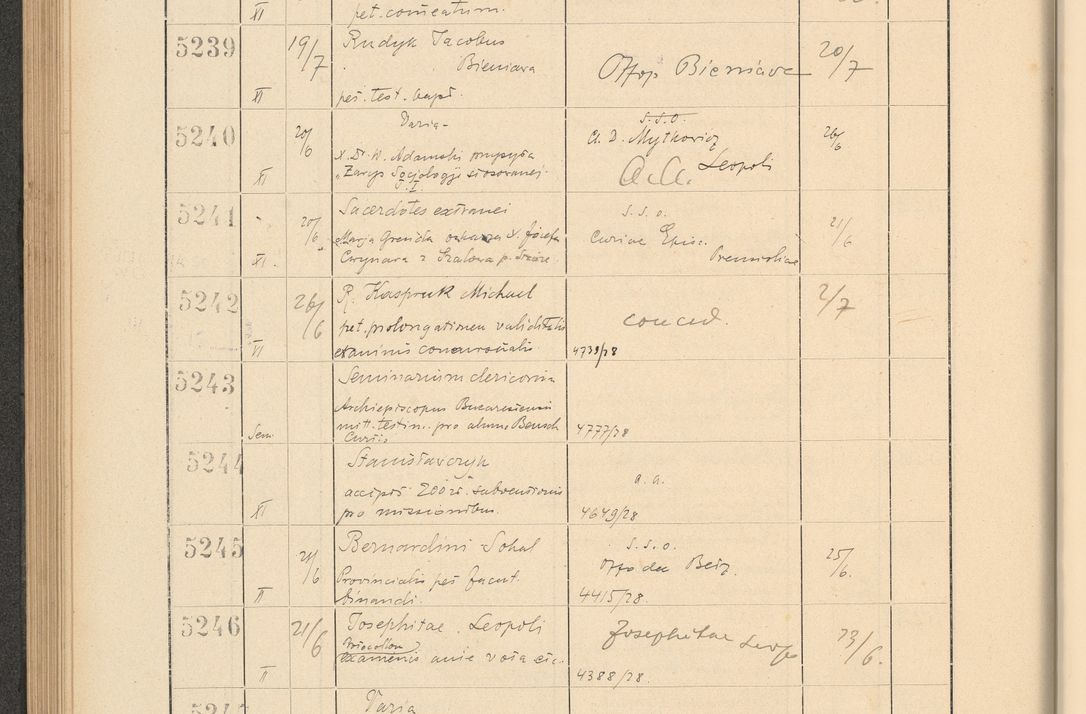 XI pet. comeatum.
5239 19/7 Rudyk Jacobus
Bieniava Offop Bieniava 20/7
XI pet. test. bapt.
5240 20/6 Varia - s.s.o.
Cl. D. Mytkowicz 26/6
X. Dr. W. Adamski
XI "Zarys Socjologji stosowanej. a.a. Leopoli
T. I.
5241 20/6 Sacerdotes extranei s.s.o. 21/6
Marja oskarża X. Józefa Curiae Epis.
XI. Cwynara z Szalowa p. Premisliae
5242 26/6 R. Kaspruk Michael 2/7
pet. prolongationem validitatis conced.
VI examinis concursualis. 4739/28
5243 Seminarium clericorum
Archiepiscopus Bucarestensis
mitt. testim. pro alumno Bensch 4777/28
Sem.
5244 Stanisławczyk
accipit 200 zł. subventionis a.a.
XI pro missionibus. 4649/28
5245 21/6 Bernardini Sokal s.s.o. 25/6.
Provincialis pet facult. Offo dec Bełz.
II binandi. 4415/28.
5246 21/6 Josephitae. Leopoli Josephitae Leop. 23/6.
Protocollum
II examinis ante vota etc. 4388/28.
5247 Varia